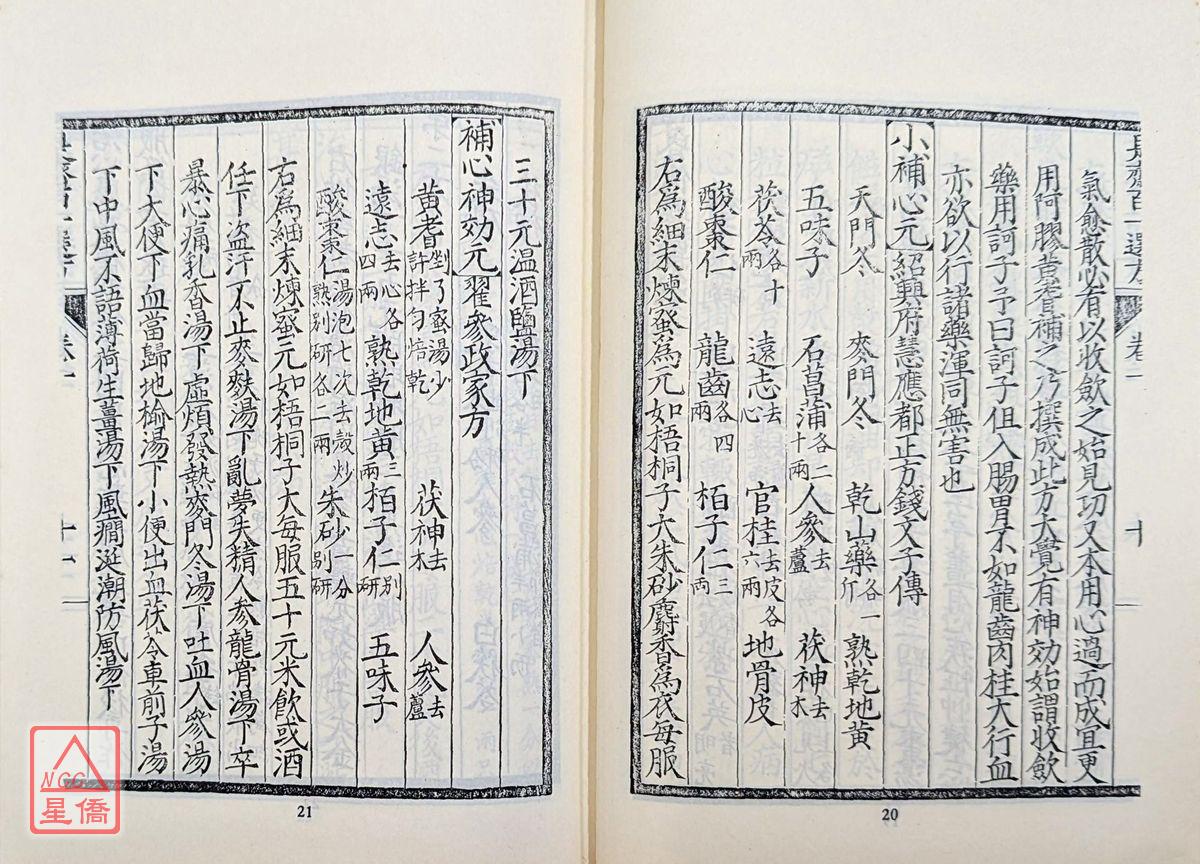 氣愈散必有以收斂之始見功又本用心過而成宜更
用阿膠黃耆補之乃撰成此方大覺有神効始謂收斂
藥用訶子予曰訶子但入腸胃不如龍齒肉桂大行血
亦欲以行諸藥渾同無害也
小補心元 紹興府慧應都正方錢文子傳
天門冬 麥門冬 乾山藥各一斤 熟乾地黃
五味子 石菖蒲各二十兩 人參去蘆 茯神去木
茯苓各十兩 遠志去心 官桂去皮各六兩 地骨皮
酸棗仁 龍齒各四兩 栢子仁三兩
右爲細末煉蜜爲元如梧桐子大朱砂麝香爲衣每服
卷一
20
三十元温酒鹽湯下
補心神効元 翟參政家方
黃耆剉了蜜湯少許拌勻焙乾 茯神去木 人參去蘆
遠志去心各四兩 熟乾地黃三兩 栢子仁別研 五味子
酸棗仁湯泡七次去殼炒熟別研各二兩 朱砂一分別研
右爲細末煉蜜元如梧桐子大每服五十元米飲或酒
任下盜汗不止麥麩湯下亂夢失精人參龍骨湯下卒
暴心痛乳香湯下虛煩發熱麥門冬湯下吐血人參湯
下大便下血當歸地榆湯下小便出血茯苓車前子湯
下中風不語薄荷生薑湯下風癇涎潮防風湯下
21
NCC
星僑